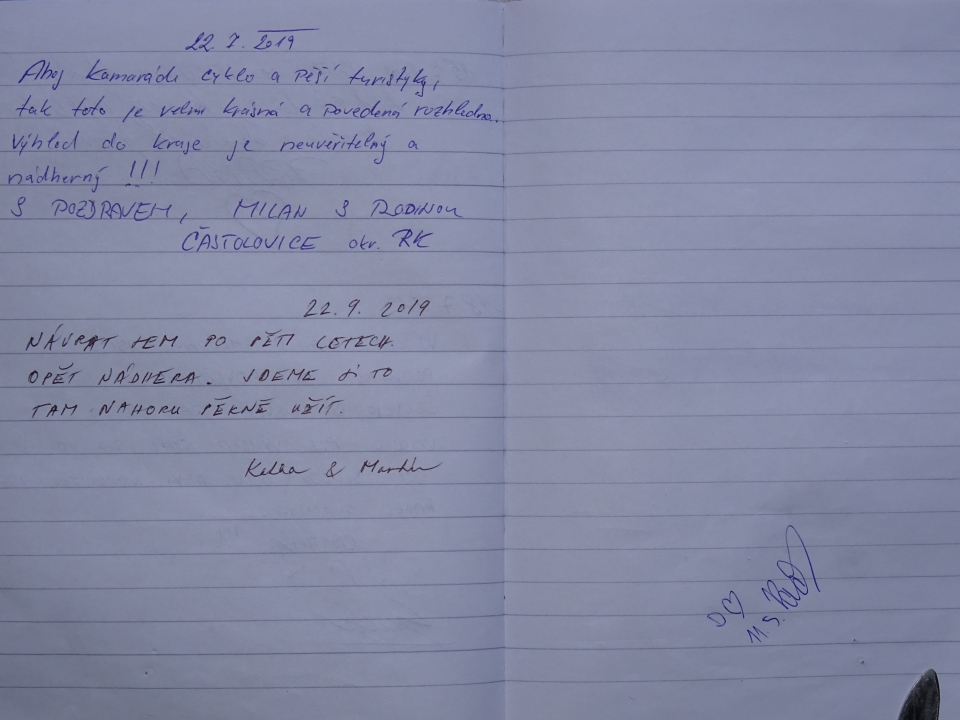 22. 7. 2019
Ahoj kamarádi cyklo a pěší turistyky,
tak toto je velmi krásná a povedená rozhledna.
Výhled do kraje je neuvěřitelný a
nádherný !!!
S POZDRAVEM, MILAN S RODINOU
ČÁSTOLOVICE okr. RK
22. 9. 2019
NÁVRAT SEM PO PĚTI LETECH.
OPĚT NÁDHERA. JDEME SI TO
TAM NAHORU PĚKNĚ UŽÍT.
& Martin